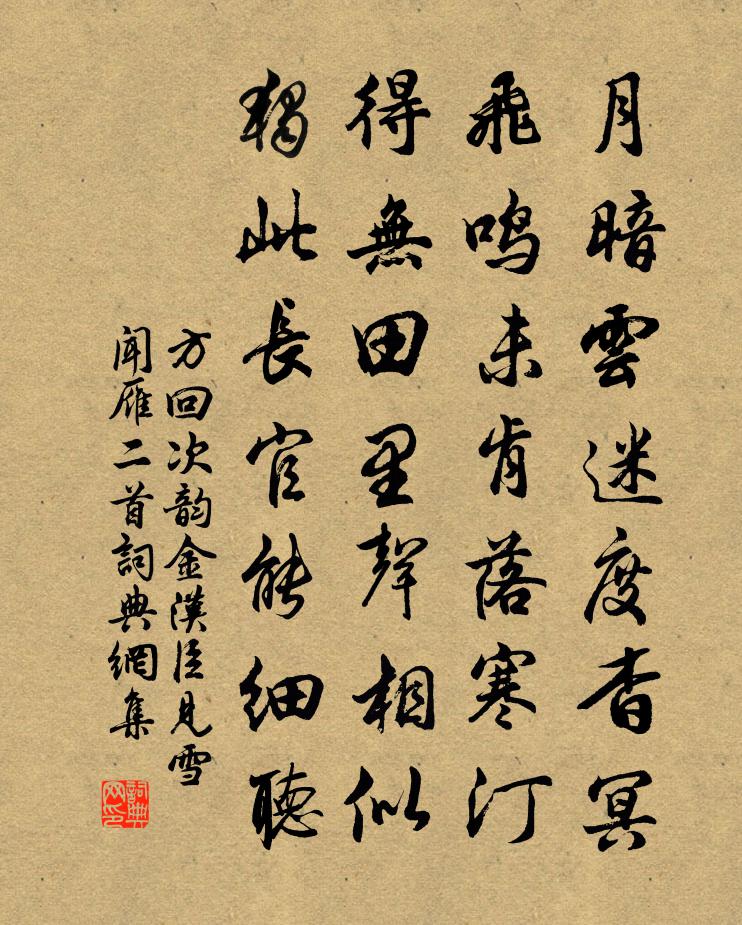 月暗雲迷度杳冥
飛鳴未肯落寒汀
得無田里聲相似
獨此長官能細聽
方回次韵金漢臣見雪
聞雁二首詞典網集
詞典网印